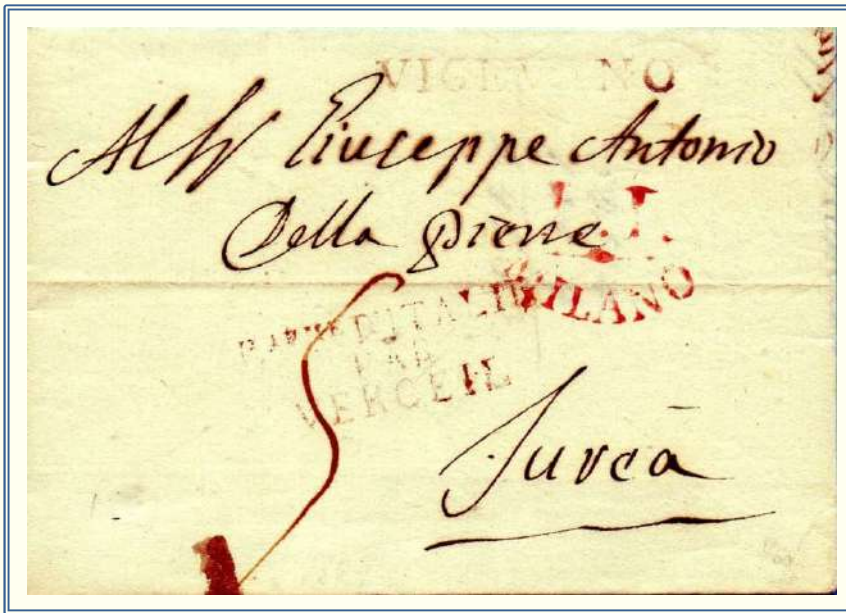 VIGEVANO
Al Sr Giuseppe Antonio
Della Pierre
L. I.
MILANO
D'ITALIE
PAR
VERCEIL
5
Jurea